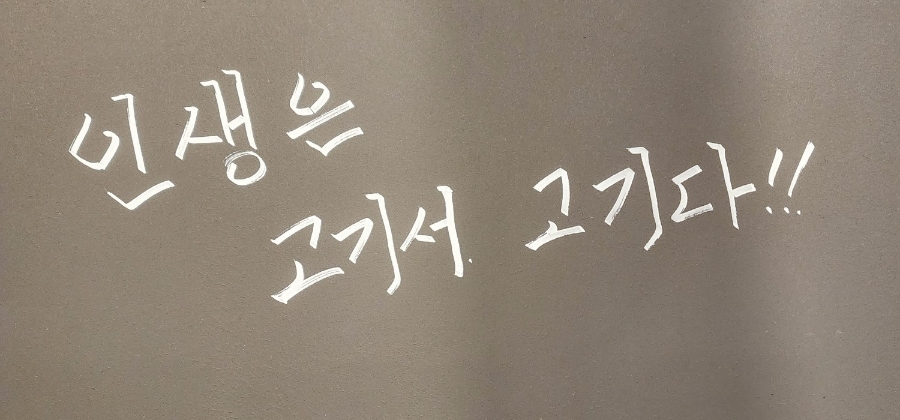 인생은
고기서. 고기다!!